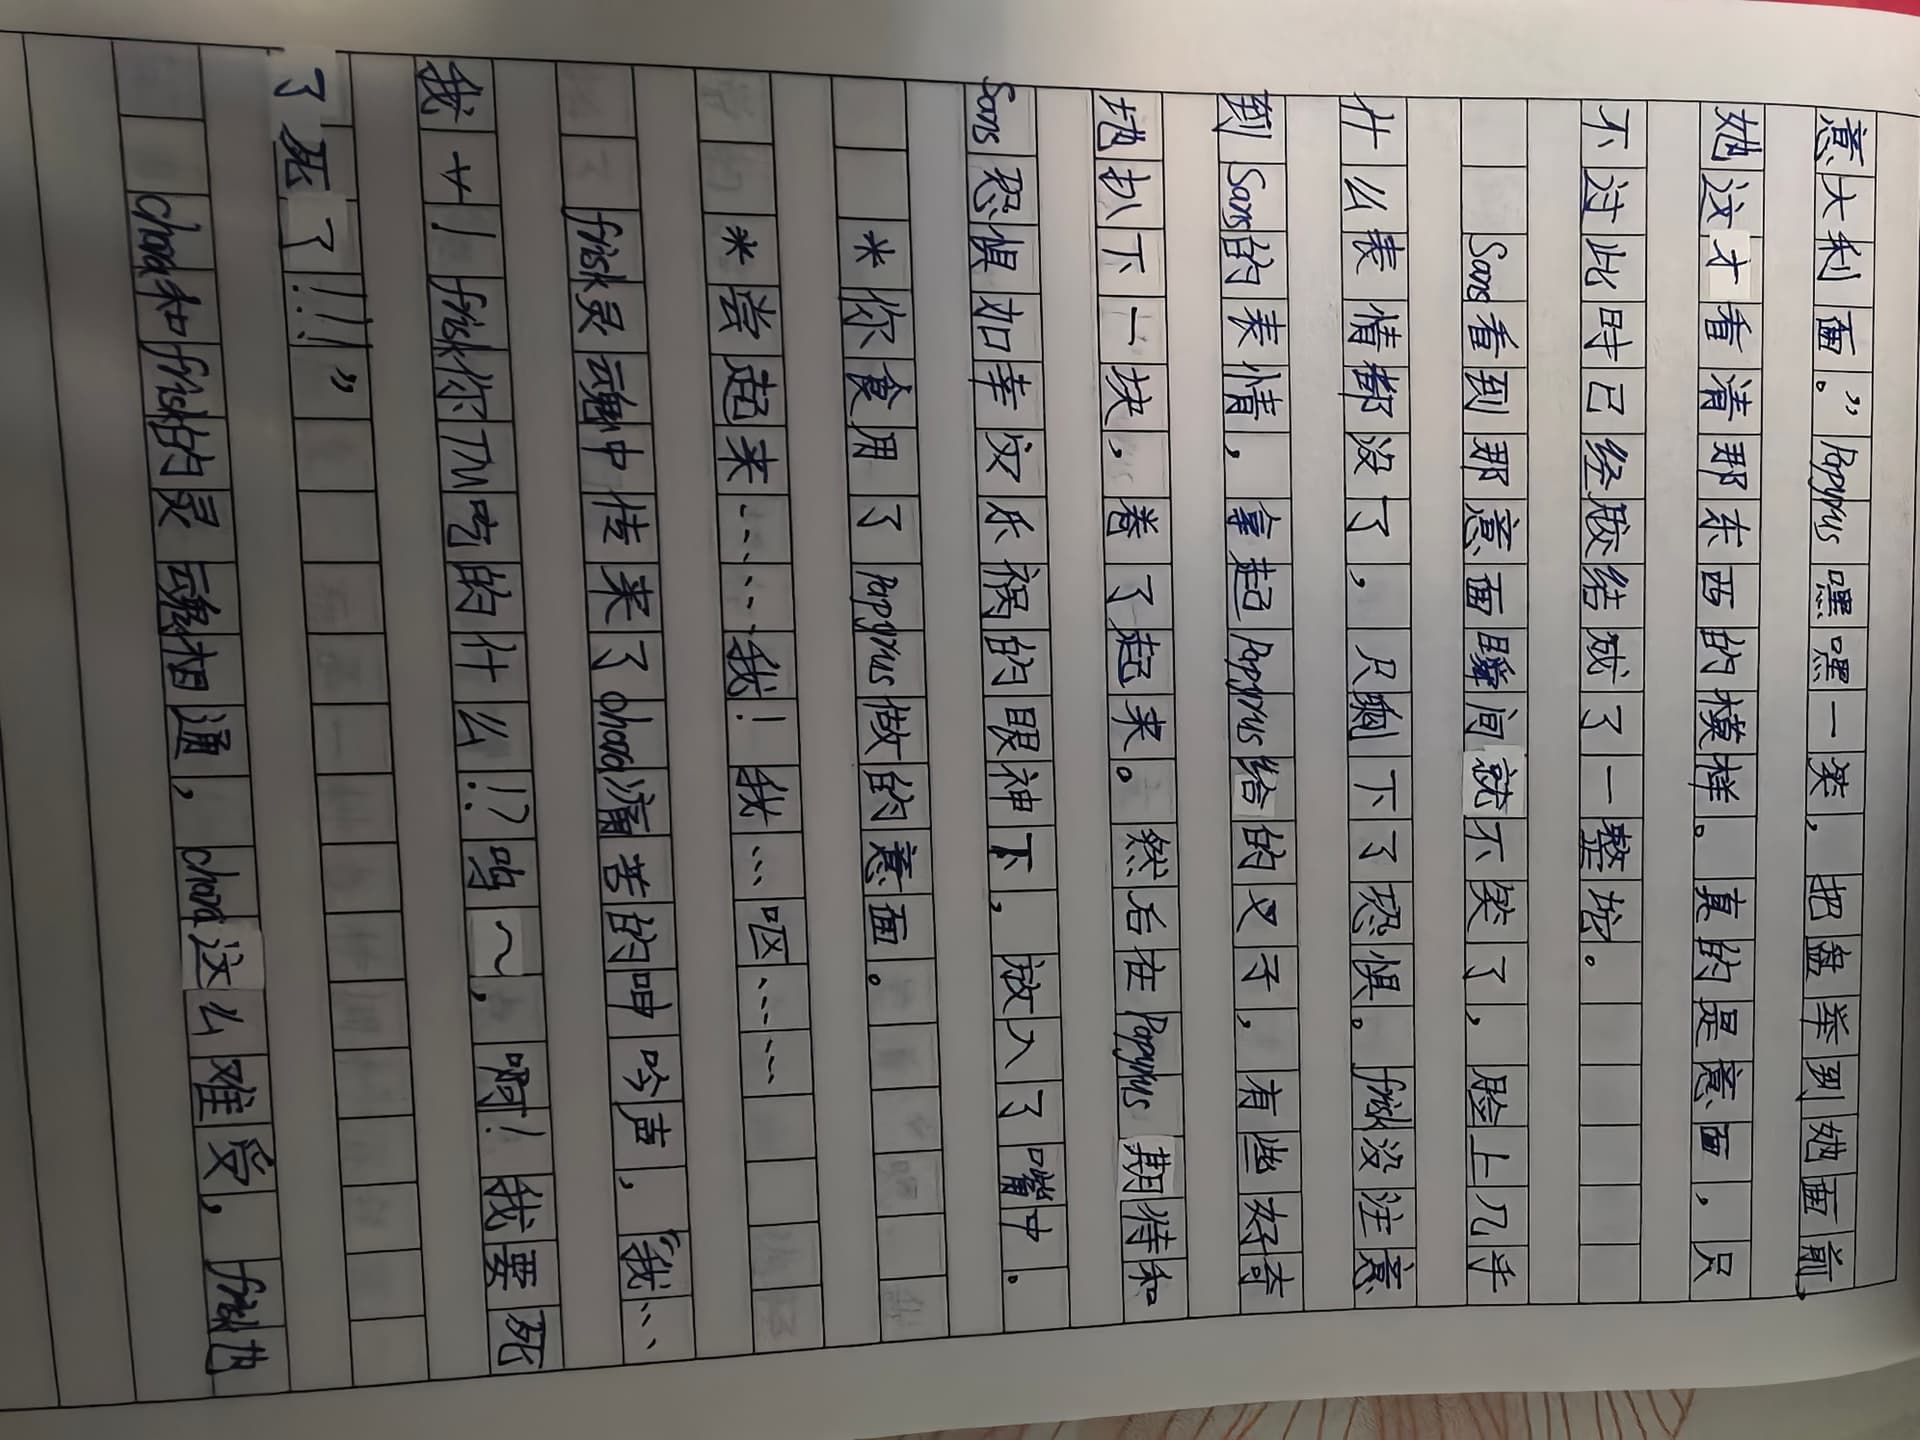 意大利面。”Papyrus嘿嘿一笑，把盘举到她面前，
她这才看清那东西的模样。真的是意面，只
不过此时已经胶结成了一整坨。
Sans看到那意面瞬间就不笑了，脸上几乎
什么表情都没了，只剩下了恐惧。frisk没注意
到Sans的表情，拿起Papyrus给的叉子，有些好奇
地扒下一块，卷了起来。然后在Papyrus期待和
Sans恐惧如幸灾乐祸的眼神下，放入了嘴中。
*你食用了Papyrus做的意面。
*尝起来……我！我…呕……
frisk灵魂中传来了chara痛苦的呻吟声，“我…
我艹！frisk你TM吃的什么！？呜～，啊！我要死
了死了！！！”
chara和frisk的灵魂相通，chara这么难受，frisk也